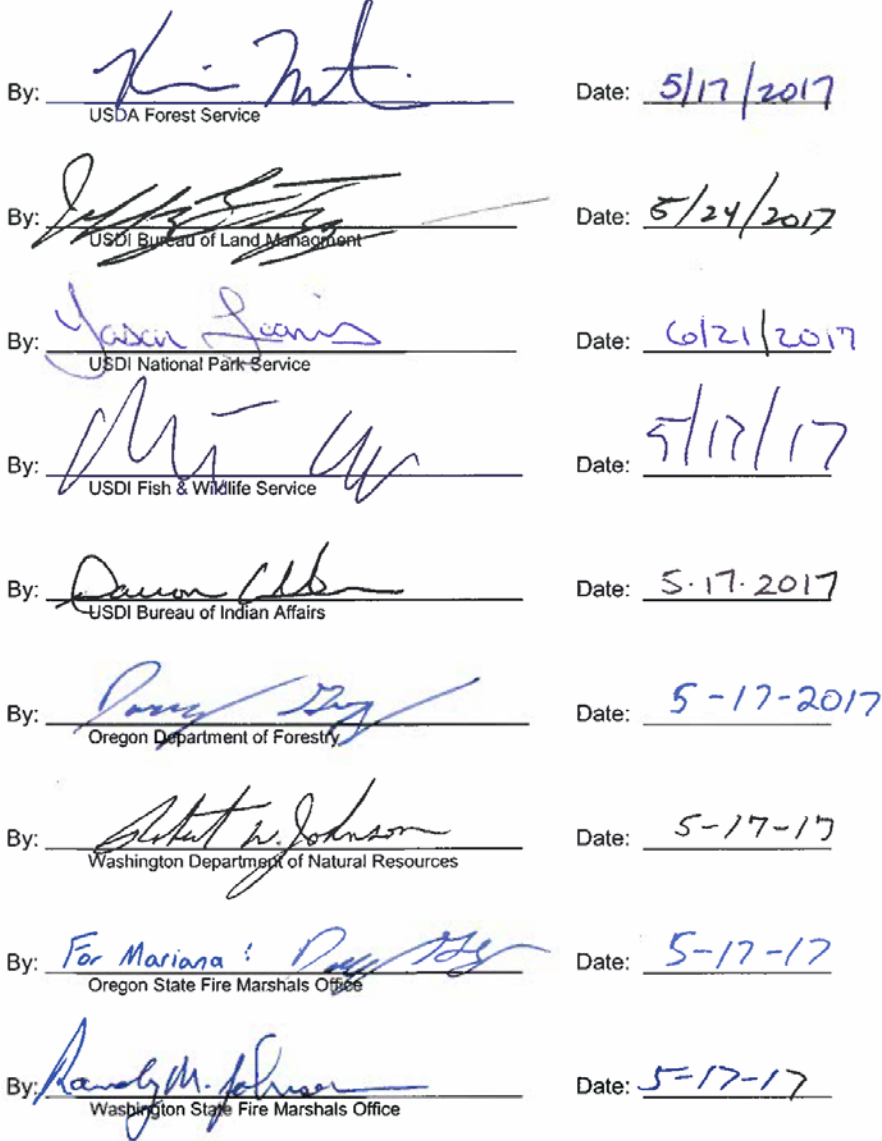 By: Date: 5/17/2017
USDA Forest Service
By: Date: 5/24/2017
USDI Bureau of Land Managment
By: Jason Date: 6/21/2017
USDI National Park Service
By: Date: 5/17/17
USDI Fish & Wildlife Service
By: Date: 5.17.2017
USDI Bureau of Indian Affairs
By: Date: 5-17-2017
Oregon Department of Forestry
By: Robert W. Johnson Date: 5-17-17
Washington Department of Natural Resources
By: For Mariana : Date: 5-17-17
Oregon State Fire Marshals Office
By: Randy M. Johnson Date: 5-17-17
Washington State Fire Marshals Office